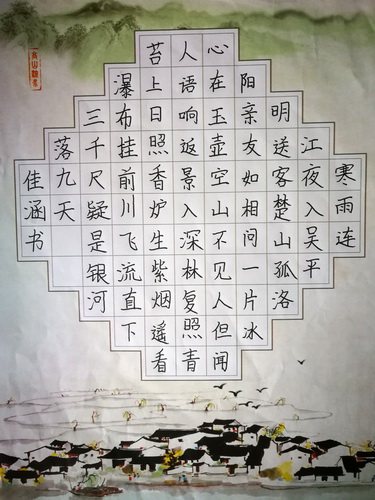 寒雨连
江夜入吴平
明送客楚山孤洛
阳亲友如相问一片冰
心在玉壶空山不见人但闻
人语响返景入深林复照青
苔上日照香炉生紫烟遥看
瀑布挂前川飞流直下
三千尺疑是银河
落九天
佳涵书